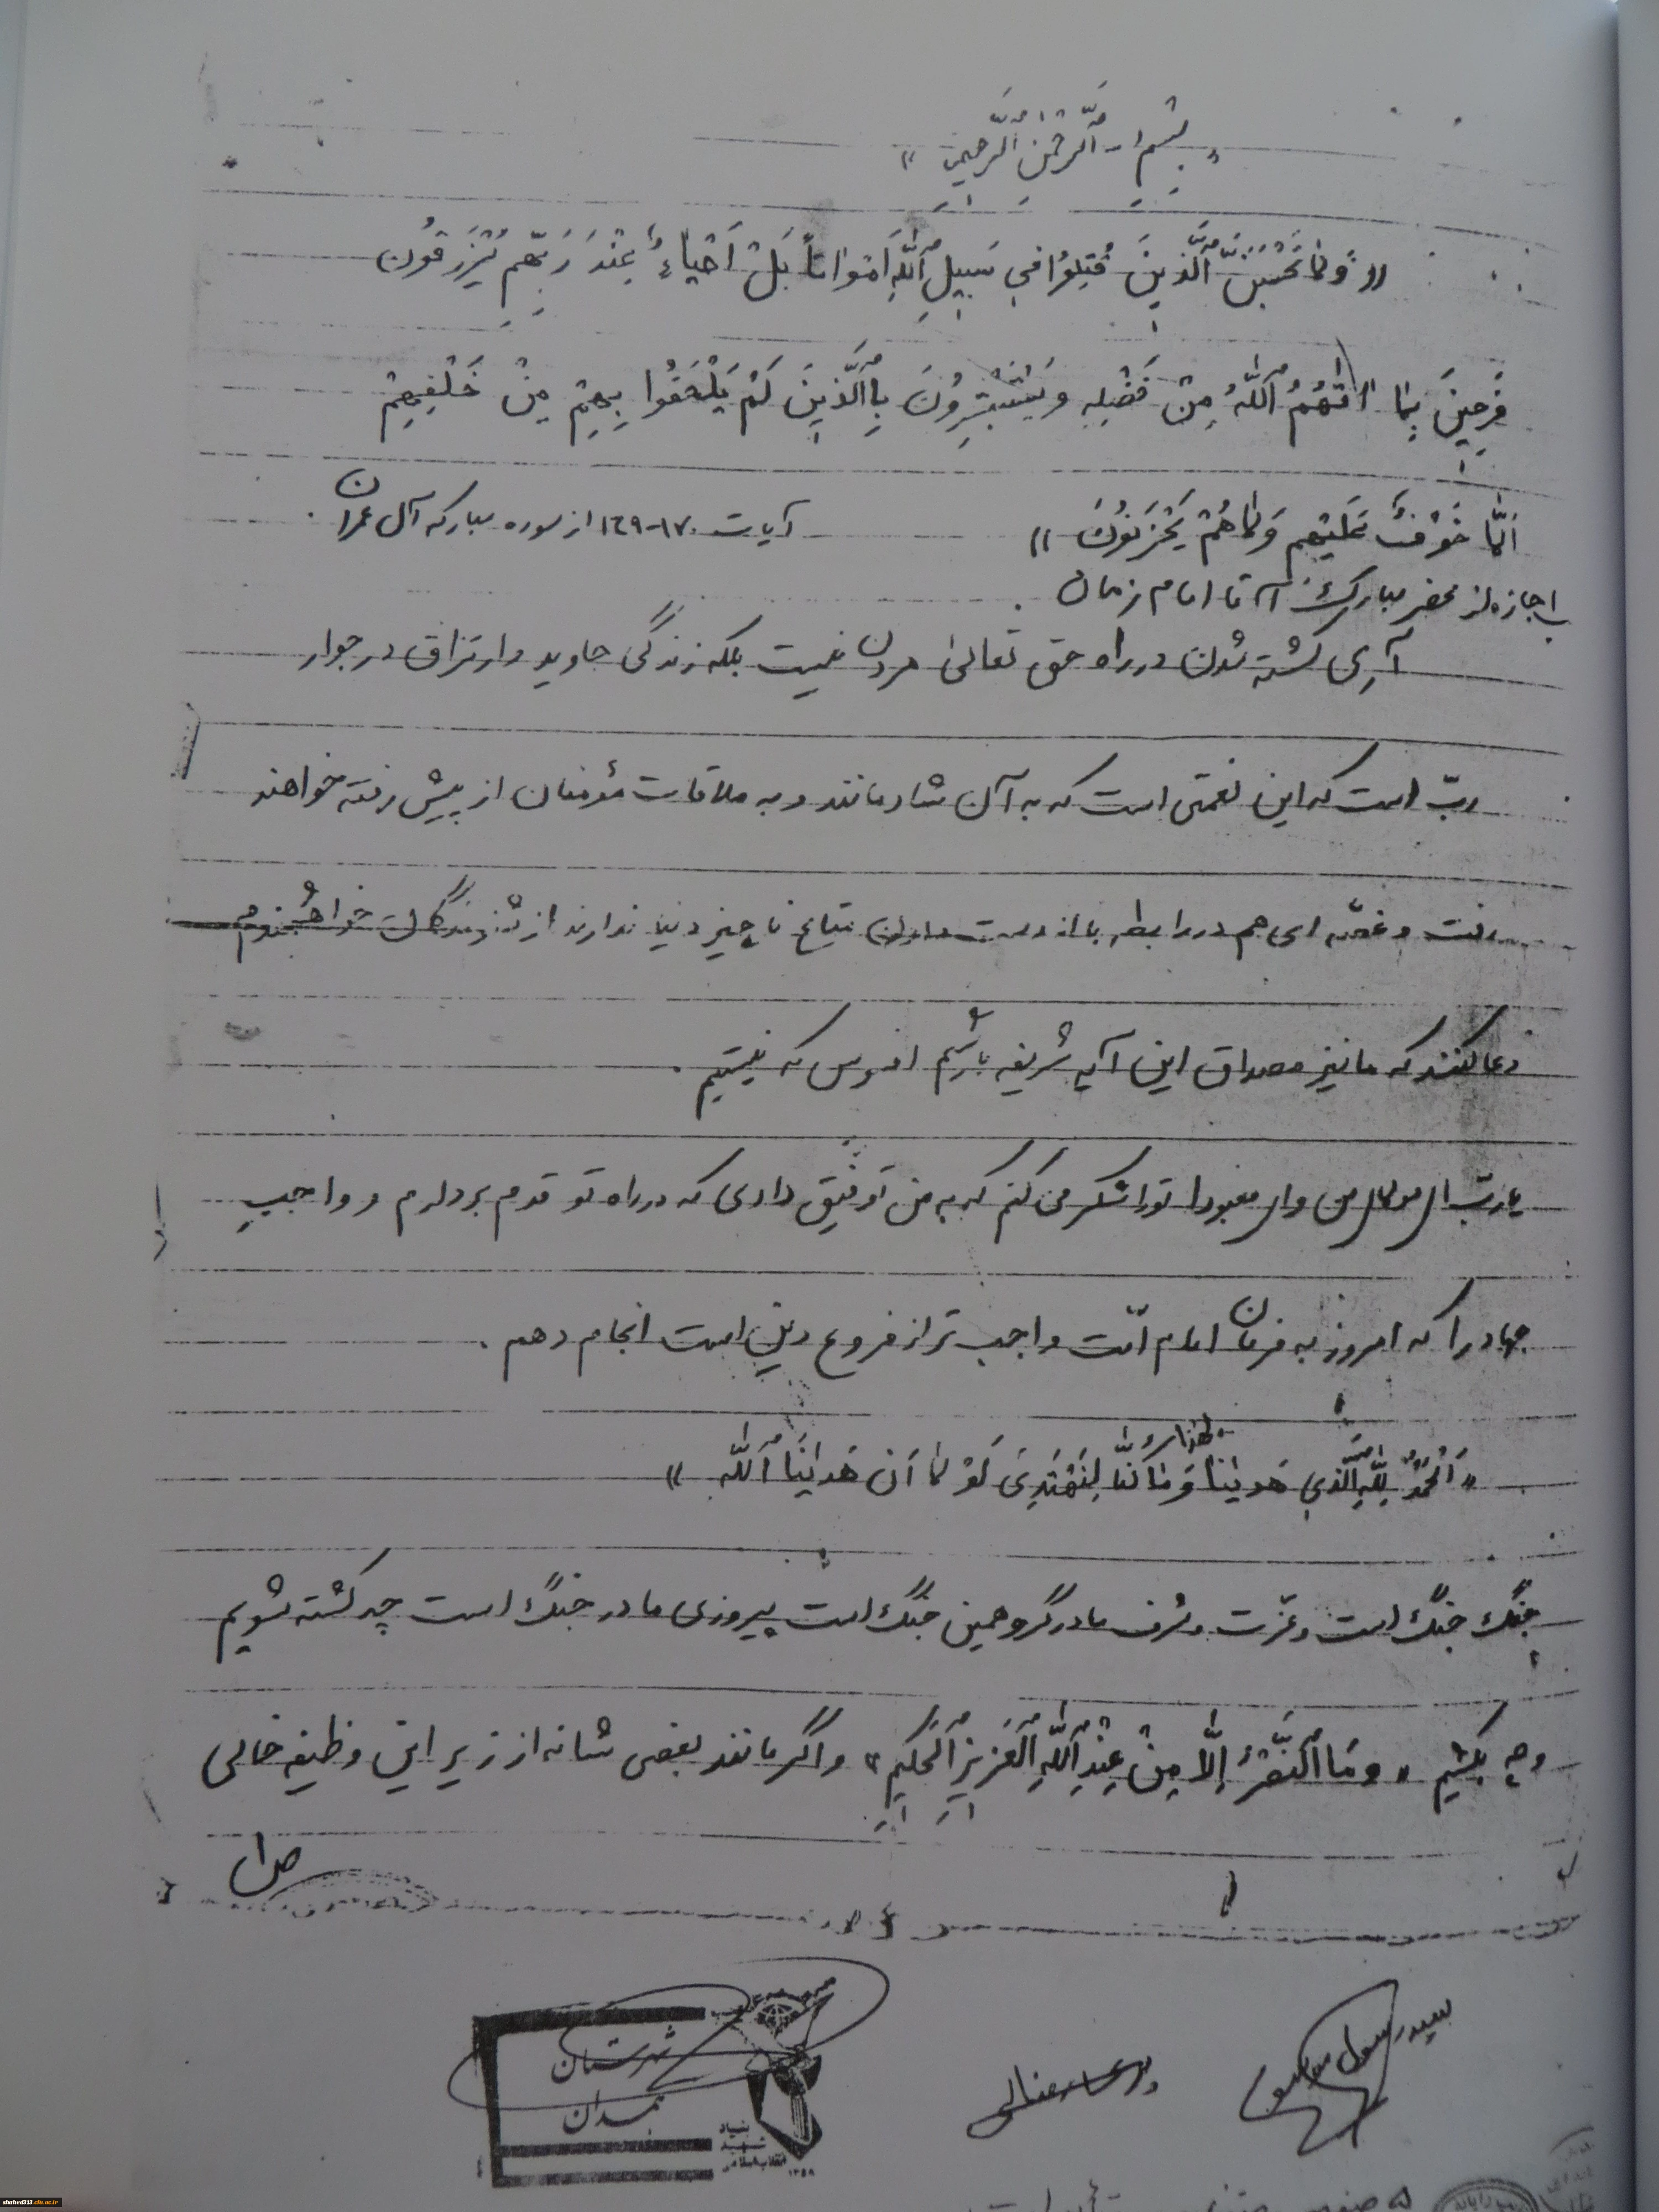 « بِسْمِ ا... اَلرَّحْمنِ اَلرَّحيمِ »
«وَلا تَحْسَبَنَّ اَلَّذينَ قُتِلوُا في سَبيلِ اَللّهِ اَمْواتاً بَلْ اَحْياءٌ عِنْدَ رَبِّهِم يُرْزَقُون
فَرِحينَ بِما اتهُمُ اَللّهُ مِنْ فَضْلِهِ وَيَسْتَبْشِرُونَ بِاَلَّذينَ لَمْ يَلْحَقُوا بِهِمْ مِنْ خَلْفِهِمْ
اَلّا خَوْفٌ عَلَيْهِم وَلا هُمْ يَحْزَنُونَ » آیات ١٧٠-١٦٩ از سوره مبارکه آل عمران .
با اجازه از محضر مبارک آقا امام زمان .
آری کشته شدن در راه حق تعالی مردن نیست بلکه زندگی جاوید و ارتزاق در جوار
ربّ است که این نعمتی است که به آن شادمانند و به ملاقات مؤمنان از پیش رفته خواهند
رفت و غصّه ای هم در رابطه با از دست دادن متاع ناچیز دنیا ندارند از شنوندگان خواهشمندم
دعا کنند که ما نیز مصداق این آیه شریفه باشیم افسوس که نیستیم .
یا ربّ ای مولای من وای معبودا تو را شکر می کنم که به من توفیق دادی که در راه تو قدم بردارم و واجب
جهاد را که امروز به فرمان امام امّت واجب تر از فروع دین است انجام دهم .
«اَلْحَمْدُ لِلّهِ اَلَّذي هَدینا لِهذا وَمَا كُنّا لِنَهْتَدِىَ لَوْ لا اَن هَدانَا اَللّهُ »
جنگ جنگ است و عزّت و شرف ما در گرو همین جنگ است پیروزی ما در جنگ است چه کشته شویم
و چه بکشیم « وَمَا اَلنَّصْرُ اِلّا مِنْ عِنْدِ اَللّهِ اَلْعَزيزِ اَلْحَكيمِ » و اگر مانند بعضی شانه از زیر این وظیفه خالی
سید رسول
شهرستان
همدان
بنیاد
شهید
انقلاب اسلامی
۱۳۵۸
shahed313.cfu.ac.ir